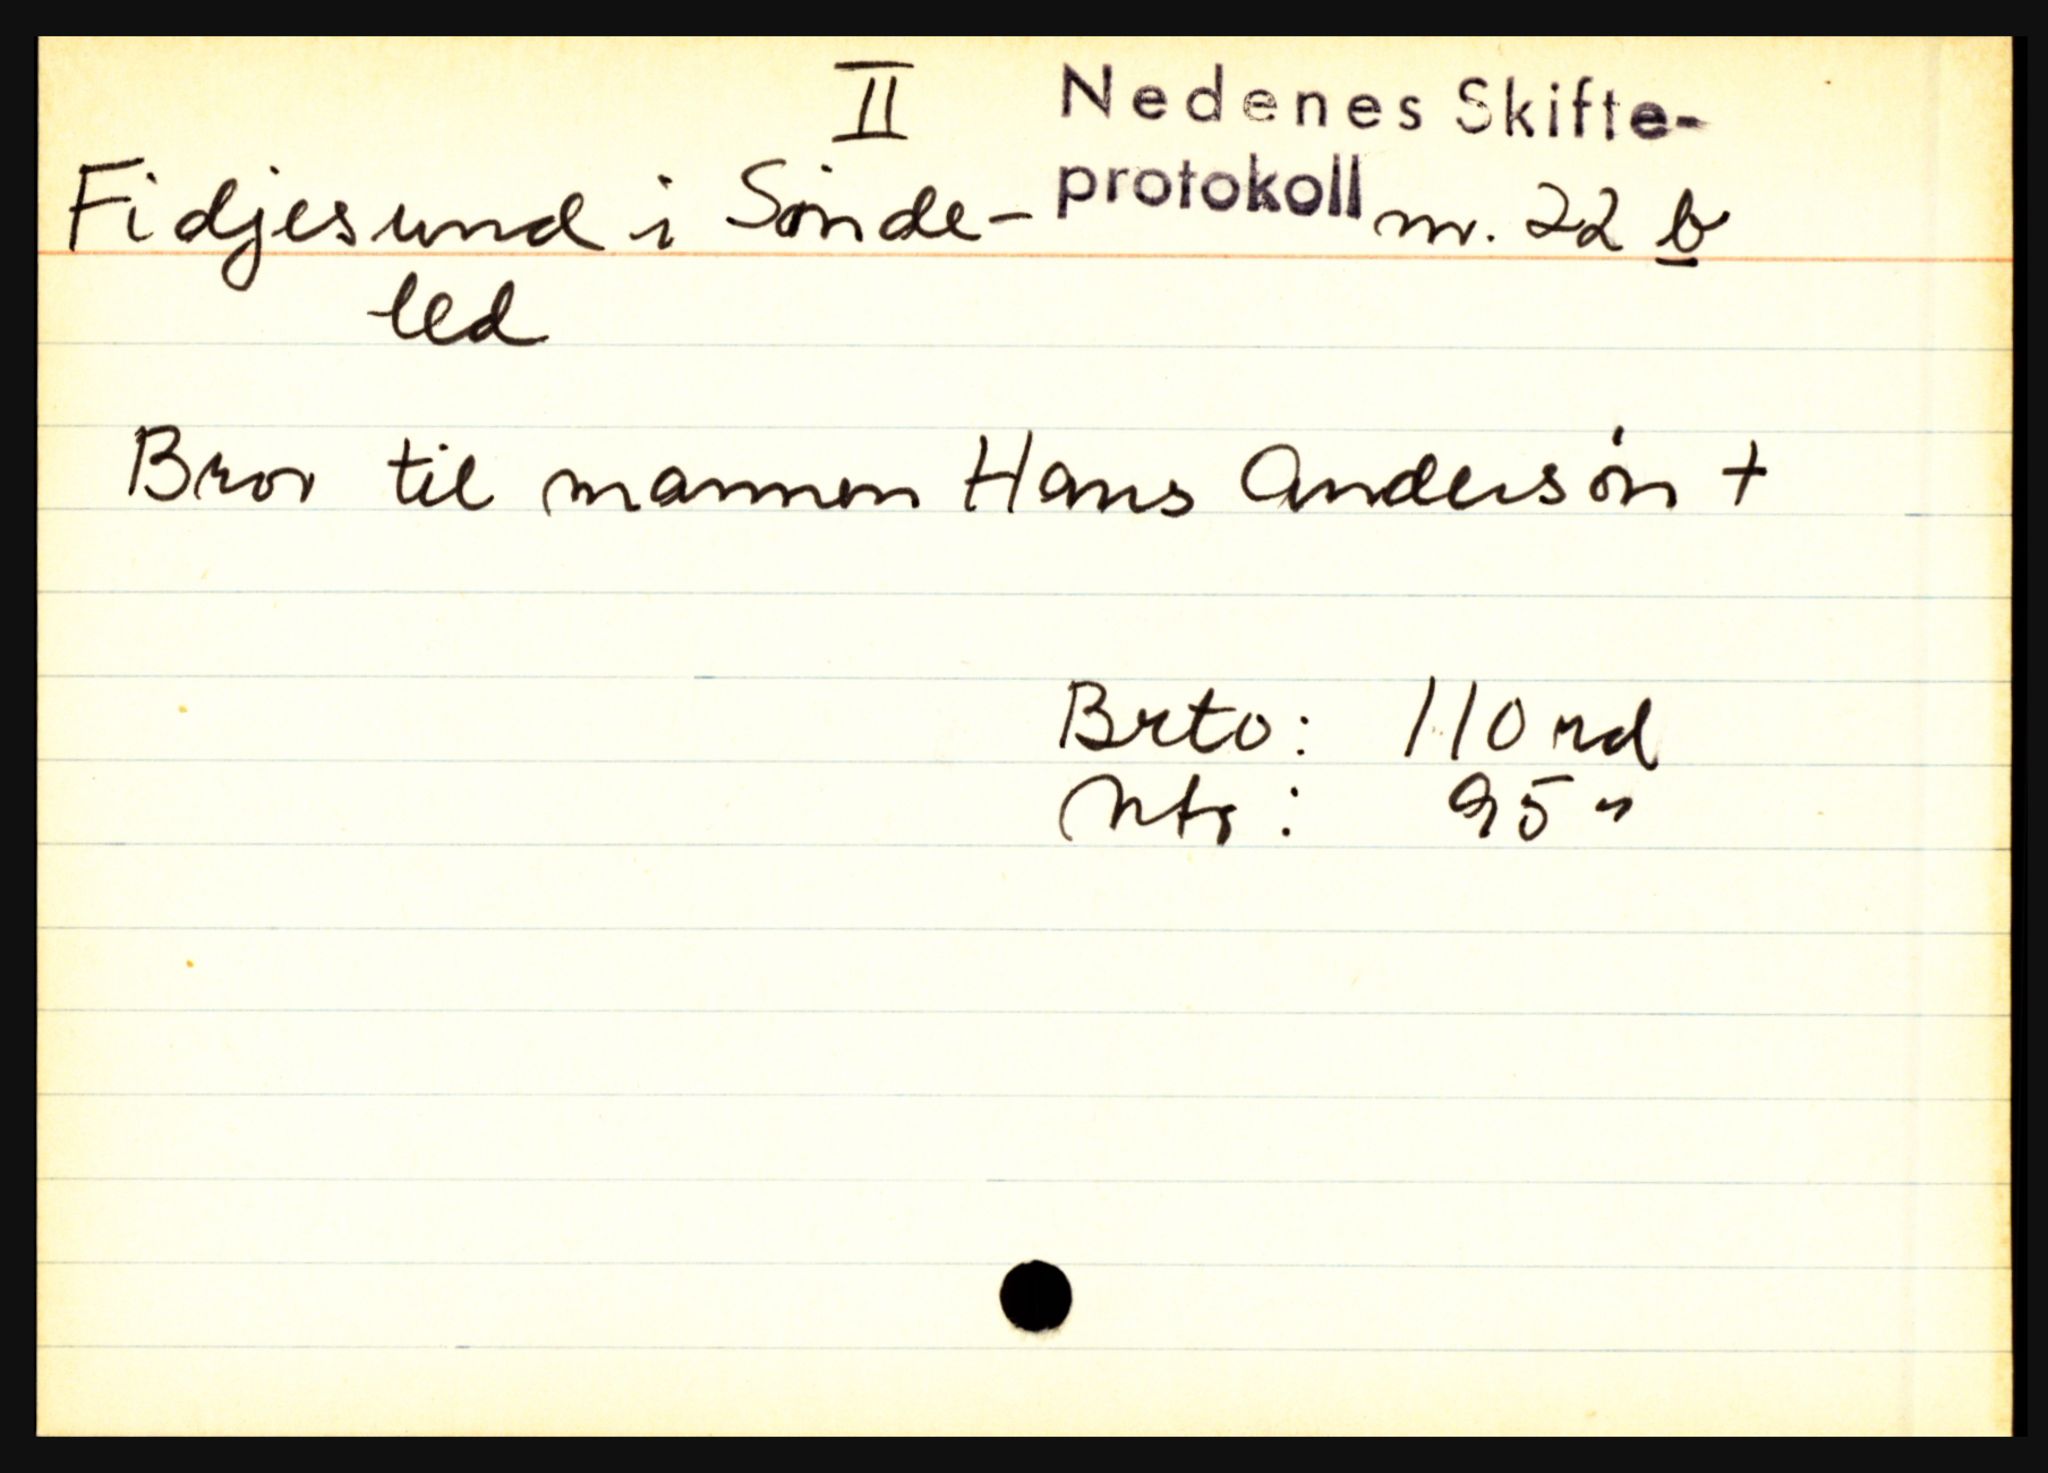 II
Nedenes Skifte-
protokoll nr. 22 b
Fidjesund i Sønde-
led
Bror til mannen Hans Andersøn +
Brto: 110 rd
Nto: 95 "